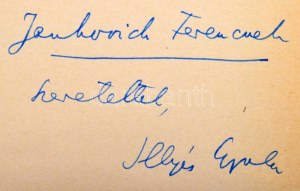 Jankovich Ferencnek
szeretettel,
Illyés Gyula